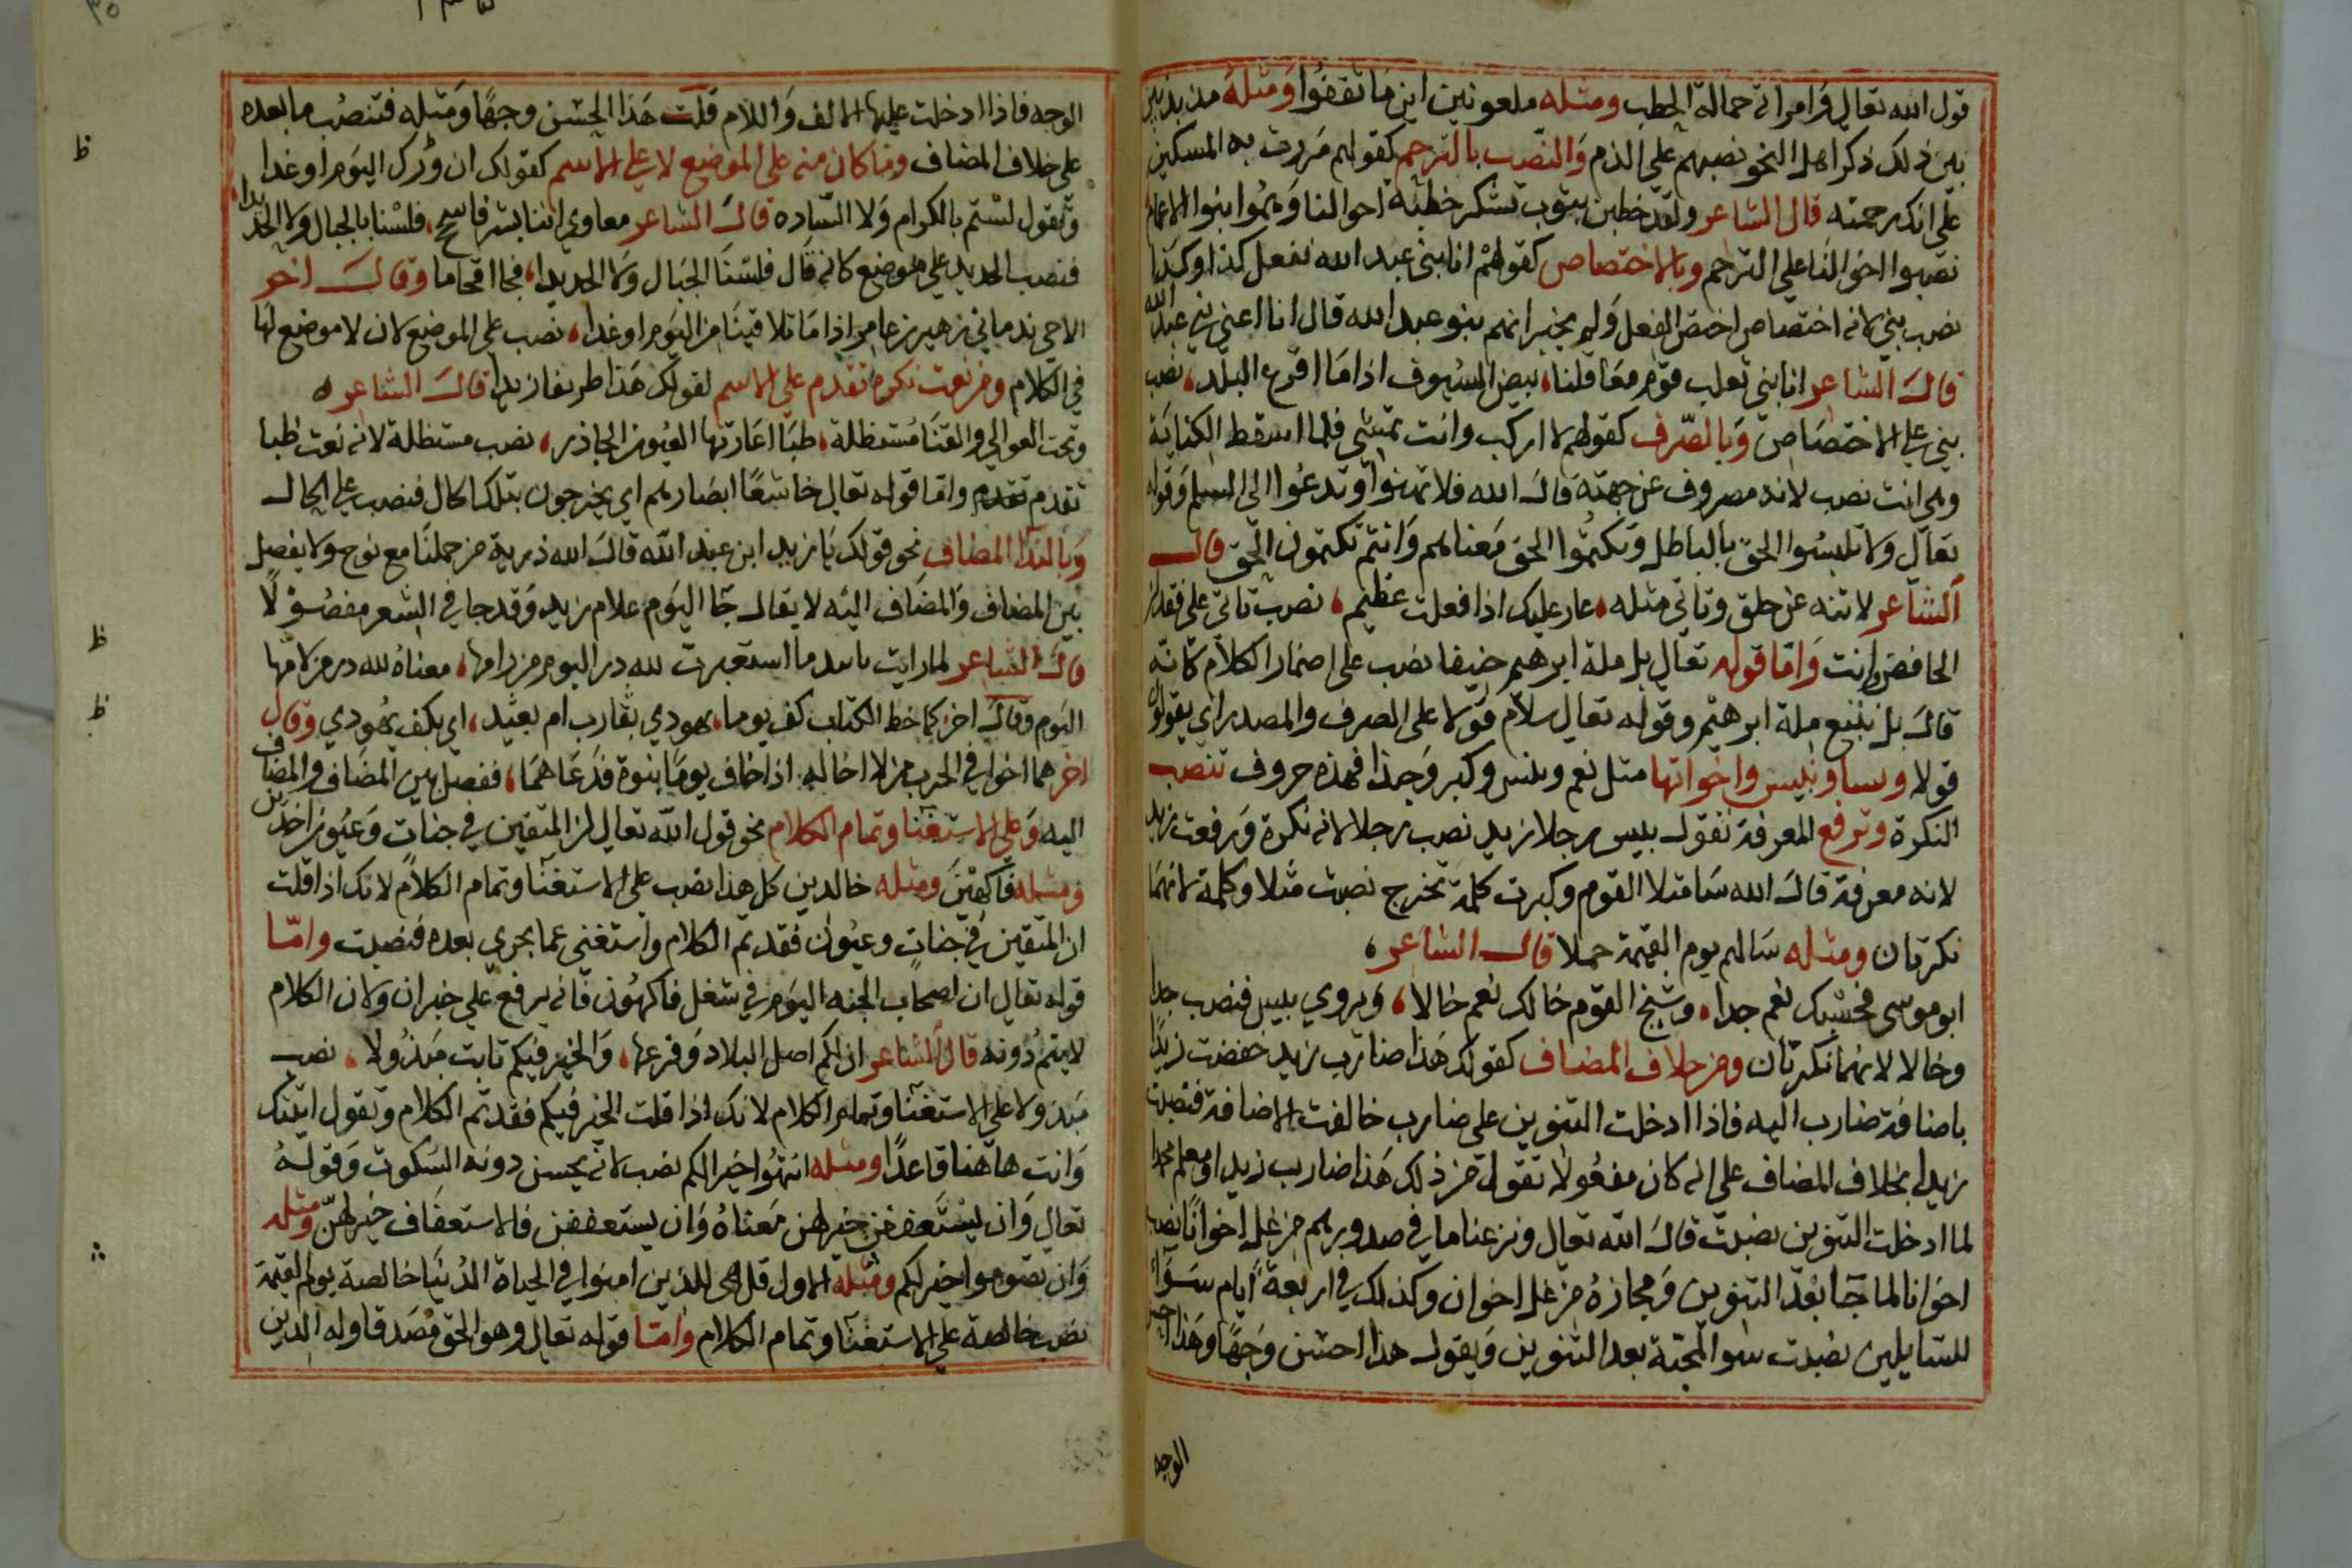 قول الله تعالى وامراته حمالة الحطب ومثله ملعونين اين ما ثقفوا ومثله مذبذبين
بين ذلك ذكر اهل النحو نصبهم على الذم والنصب بالترحم كقولهم مررت به المسكين
على انك رحمته قال الشاعر ولقد خطبن بيوب تشكر خطبه احوالنا وهموا بنوا الاعمام
نصبوا اخوالنا على الترحم وبالاختصاص كقولهم انا بني عبد الله نفعل كذا وكذا
نصب بني لانه اختصاص اختص الفعل ولم يخبر انهم بنو عبد الله قال انا اعني بني عبد الله
قال الشاعر انا بني تعلب قوم معاقلنا، بيض السيوف اذا ما افزع البلد، نصب
بني على الاختصاص وبالصرف كقولهم لا اركب وانت تمشي فلما اسقط الكناية
وهي انت نصب لانه مصروف عن جهته قال الله فلا تهنوا وتدعوا الى السلم وقوله
تعالى ولا تلبسوا الحق بالباطل وتكتموا الحق معناهم وانتم تكتمون الحق قال
الشاعر لا تنه عن خلق وتاتي مثله، عار عليك اذا فعلت عظيم، نصب تاتي على فقدان
الخافض وانت واما قوله تعالى بل ملة ابرهيم حنيفا نصب على اضمار الكلام كانه
قال بل نتبع ملة ابرهيم وقوله تعالى سلام قولا على الصرف والمصدر اي يقولون
قولا وبسا وبئيس واخواتها مثل نعم وبئس وكبر وحبذا فهذه حروف تنصب
النكرة وترفع المعرفة تقول بيس رجلا زيد نصب رجلا لانه نكرة ورفعت زيد
لانه معرفة قال الله سا مثلا القوم وكبرت كلمة تخرج نصبت مثلا وكلمة لانهما
نكرتان ومثله سالهم يوم القيمة حملا قال الشاعر،
ابو موسى فحسبك نعم جدا، وشيخ القوم خالك نعم خالا، ويروي بيس فنصب جدا
وخالا لانهما نكرتان ومن خلاف المضاف كقولك هذا ضارب زيد خفضت زيدا
باضافة ضارب اليه فاذا ادخلت التنوين على ضارب خالفت الاضافة فنصبت
زيدا بخلاف المضاف على انه كان مفعولا تقول من ذلك هذا ضارب زيدا ومعلم محمدا
لما ادخلت التنوين نصبت قال الله تعالى ونزعنا ما في صدورهم من غل اخوانا نصب
اخوانا لما جا بعد التنوين ومجازه من غل اخوان وكذلك في اربعة ايام سواء
للسايلين نصبت سوا لمجيه بعد التنوين ويقول هذا احسن وجها وهذا حسن
الوجه
الوجه فاذا ادخلت عليها الالف واللام قلت هذا الحسن وجها ومثله فتنصب ما بعده
على خلاف المضاف وما كان منه على الموضع لا على الاسم كقولك ان وزرك اليوم او غدا
وتقول لستم بالكرام ولا السادة قال الشاعر معاوي اننا بشر فاسجح، فلسنا بالجبال ولا الحديدا،
فنصب الحديد على موضع كانه قال فلسنا الجبال ولا الحديدا، فجا اقحاما وقال اخر
الا حي ندماني زهير بن عامر اذا ما تلاقينا من اليوم او غدا، نصب على الموضع لان لا موضع لها
في الكلام ومن نعت نكرة تقدم على الاسم لقولك هذا طريفا زيدا قال الشاعر ه
وتحت العوالي والقنا مستظلة، ظبا اعارتها العيون الجاذر، نصب مستظلة لانه نعت ظبا
تقدم تقدم واما قوله تعالى خاشعا ابصارهم اي يخرجون بتلك الحال فنصب على الحال
وبالندا المضاف نحو قولك يا زيد ابن عبد الله قال الله ذرية من حملنا مع نوح ولا يفصل
بين المضاف والمضاف اليه لا يقال جا اليوم غلام زيد وقد جا في الشعر مفصولا
قال الشاعر لما رايت ما استعبرت لله در اليوم من لامها، معناه لله در من لامها
اليوم وقال اخر كما خط الكتاب كف يوما، يهودي يقارب ام بعيد، اي بكف يهودي وقال
اخر هما اخوا في الحرب من لا اخا له اذا خاف يوما نبوة فدعاهما، ففصل بين المضاف والمضاف
اليه وعلى الاستغنا وتمام الكلام نحو قول الله تعالى ان المتقين في جنات وعيون اخذين
ومثله فاكهين ومثله خالدين كل هذا نصب على الاستغنا وتمام الكلام لانك اذا قلت
ان المتقين في جنات وعيون فقد تم الكلام واستغنى عما يجري بعده فنصبت واما
قوله تعالى ان اصحاب الجنه اليوم في شغل فاكهون فانه يرفع على خبر ان ولان الكلام
لا يتم دونه قال الشاعر ان لكم اصل البلاد وفرعها، والخير فيكم ثابت مبذولا، نصب
مبذولا على الاستغنا وتمام الكلام لانك اذا قلت الخير فيكم فقد تم الكلام وتقول اتيتك
وانت هاهنا قاعدا ومثله انتهوا خيرا لكم نصب لانه يحسن دونه السكوت وقوله
تعالى وان يستعففن خير لهن معناه وان يستعففن فالاستعفاف خير لهن ومثله
وان تصوموا خير لكم ومثله الاول قل هي للذين امنوا في الحياة الدنيا خالصة يوم القيمة
نصب خالصة على الاستغنا وتمام الكلام واما قوله تعالى وهو الحق مصدقا وله الدين